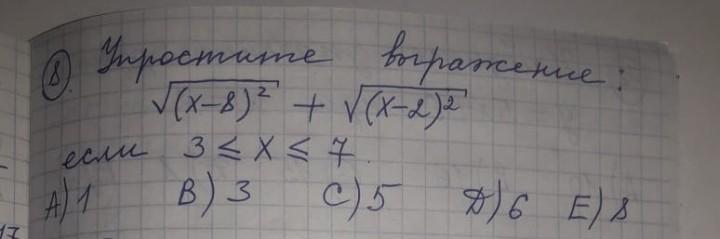 8. Упростите выражение:
√(x-8)² + √(x-2)²
если 3 ≤ x ≤ 7.
A) 1 B) 3 C) 5 D) 6 E) 8
17